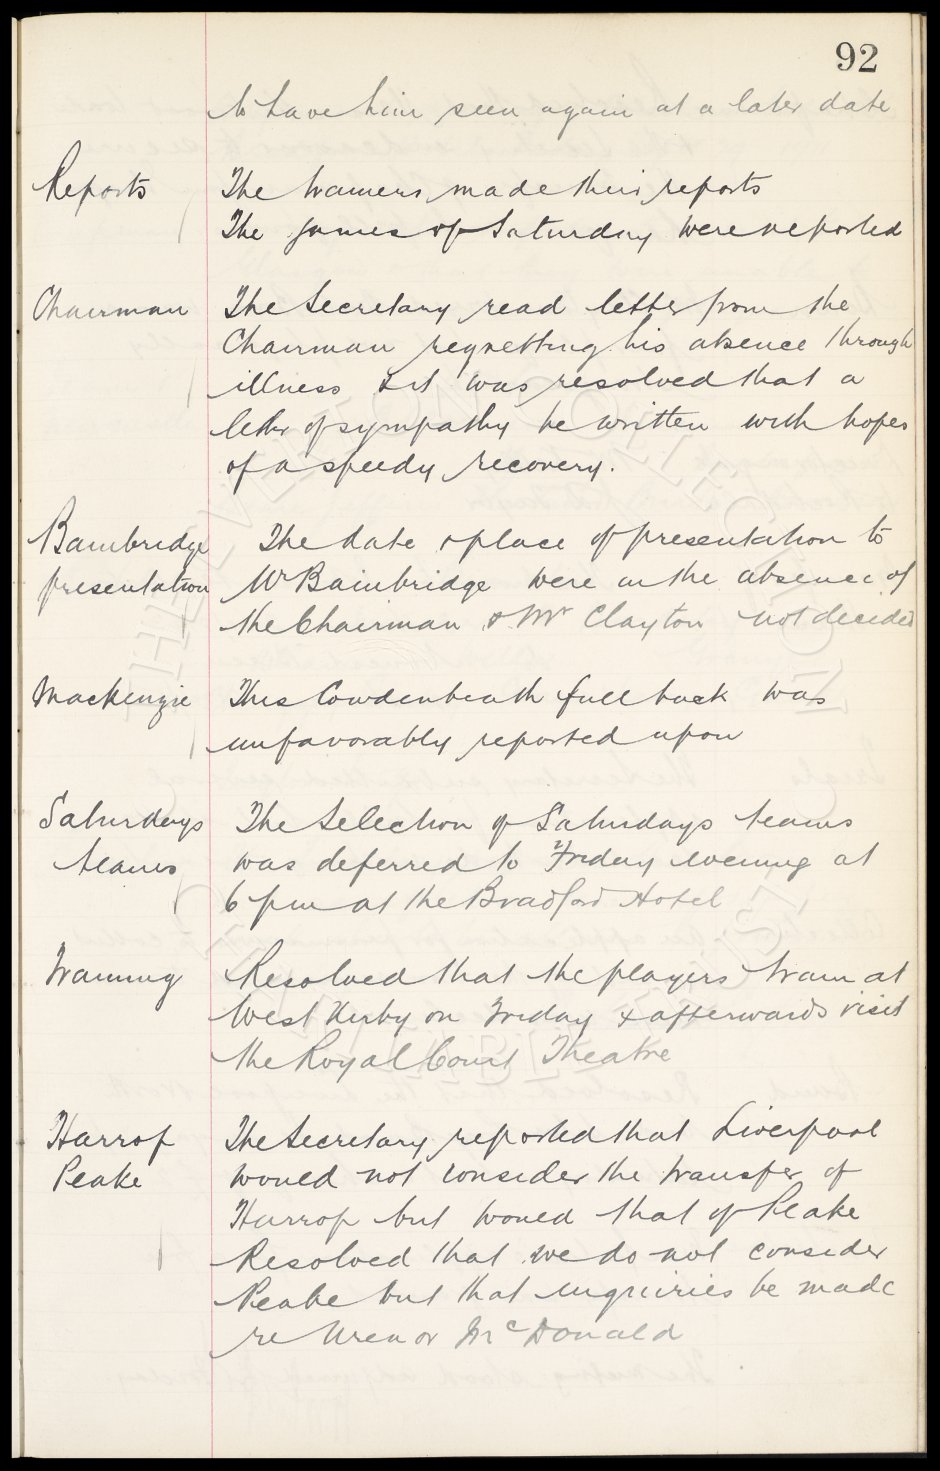 92
to have him seen again at a later date
Reports
The trainers made their reports
The games of Saturday were reported
Chairman
The Secretary read letter from the
Chairman regretting his absence through
illness & it was resolved that a
letter of sympathy be written with hopes
of a speedy recovery.
Bainbridge
presentation
The date & place of presentation to
Mr Bainbridge were in the absence of
the Chairman & Mr Clayton not decided
Mackenzie
This Cowdenbeath full back was
unfavorably reported upon
Saturdays
teams
The Selection of Saturdays teams
was deferred to Friday evening at
6 pm at the Bradford Hotel
Training
Resolved that the players train at
West Derby on Friday & afterwards visit
the Royal Court Theatre
Harrop
Peake
The Secretary reported that Liverpool
would not consider the transfer of
Harrop but would that of Peake
Resolved that we do not consider
Peake but that inquiries be made
re Uren or McDonald